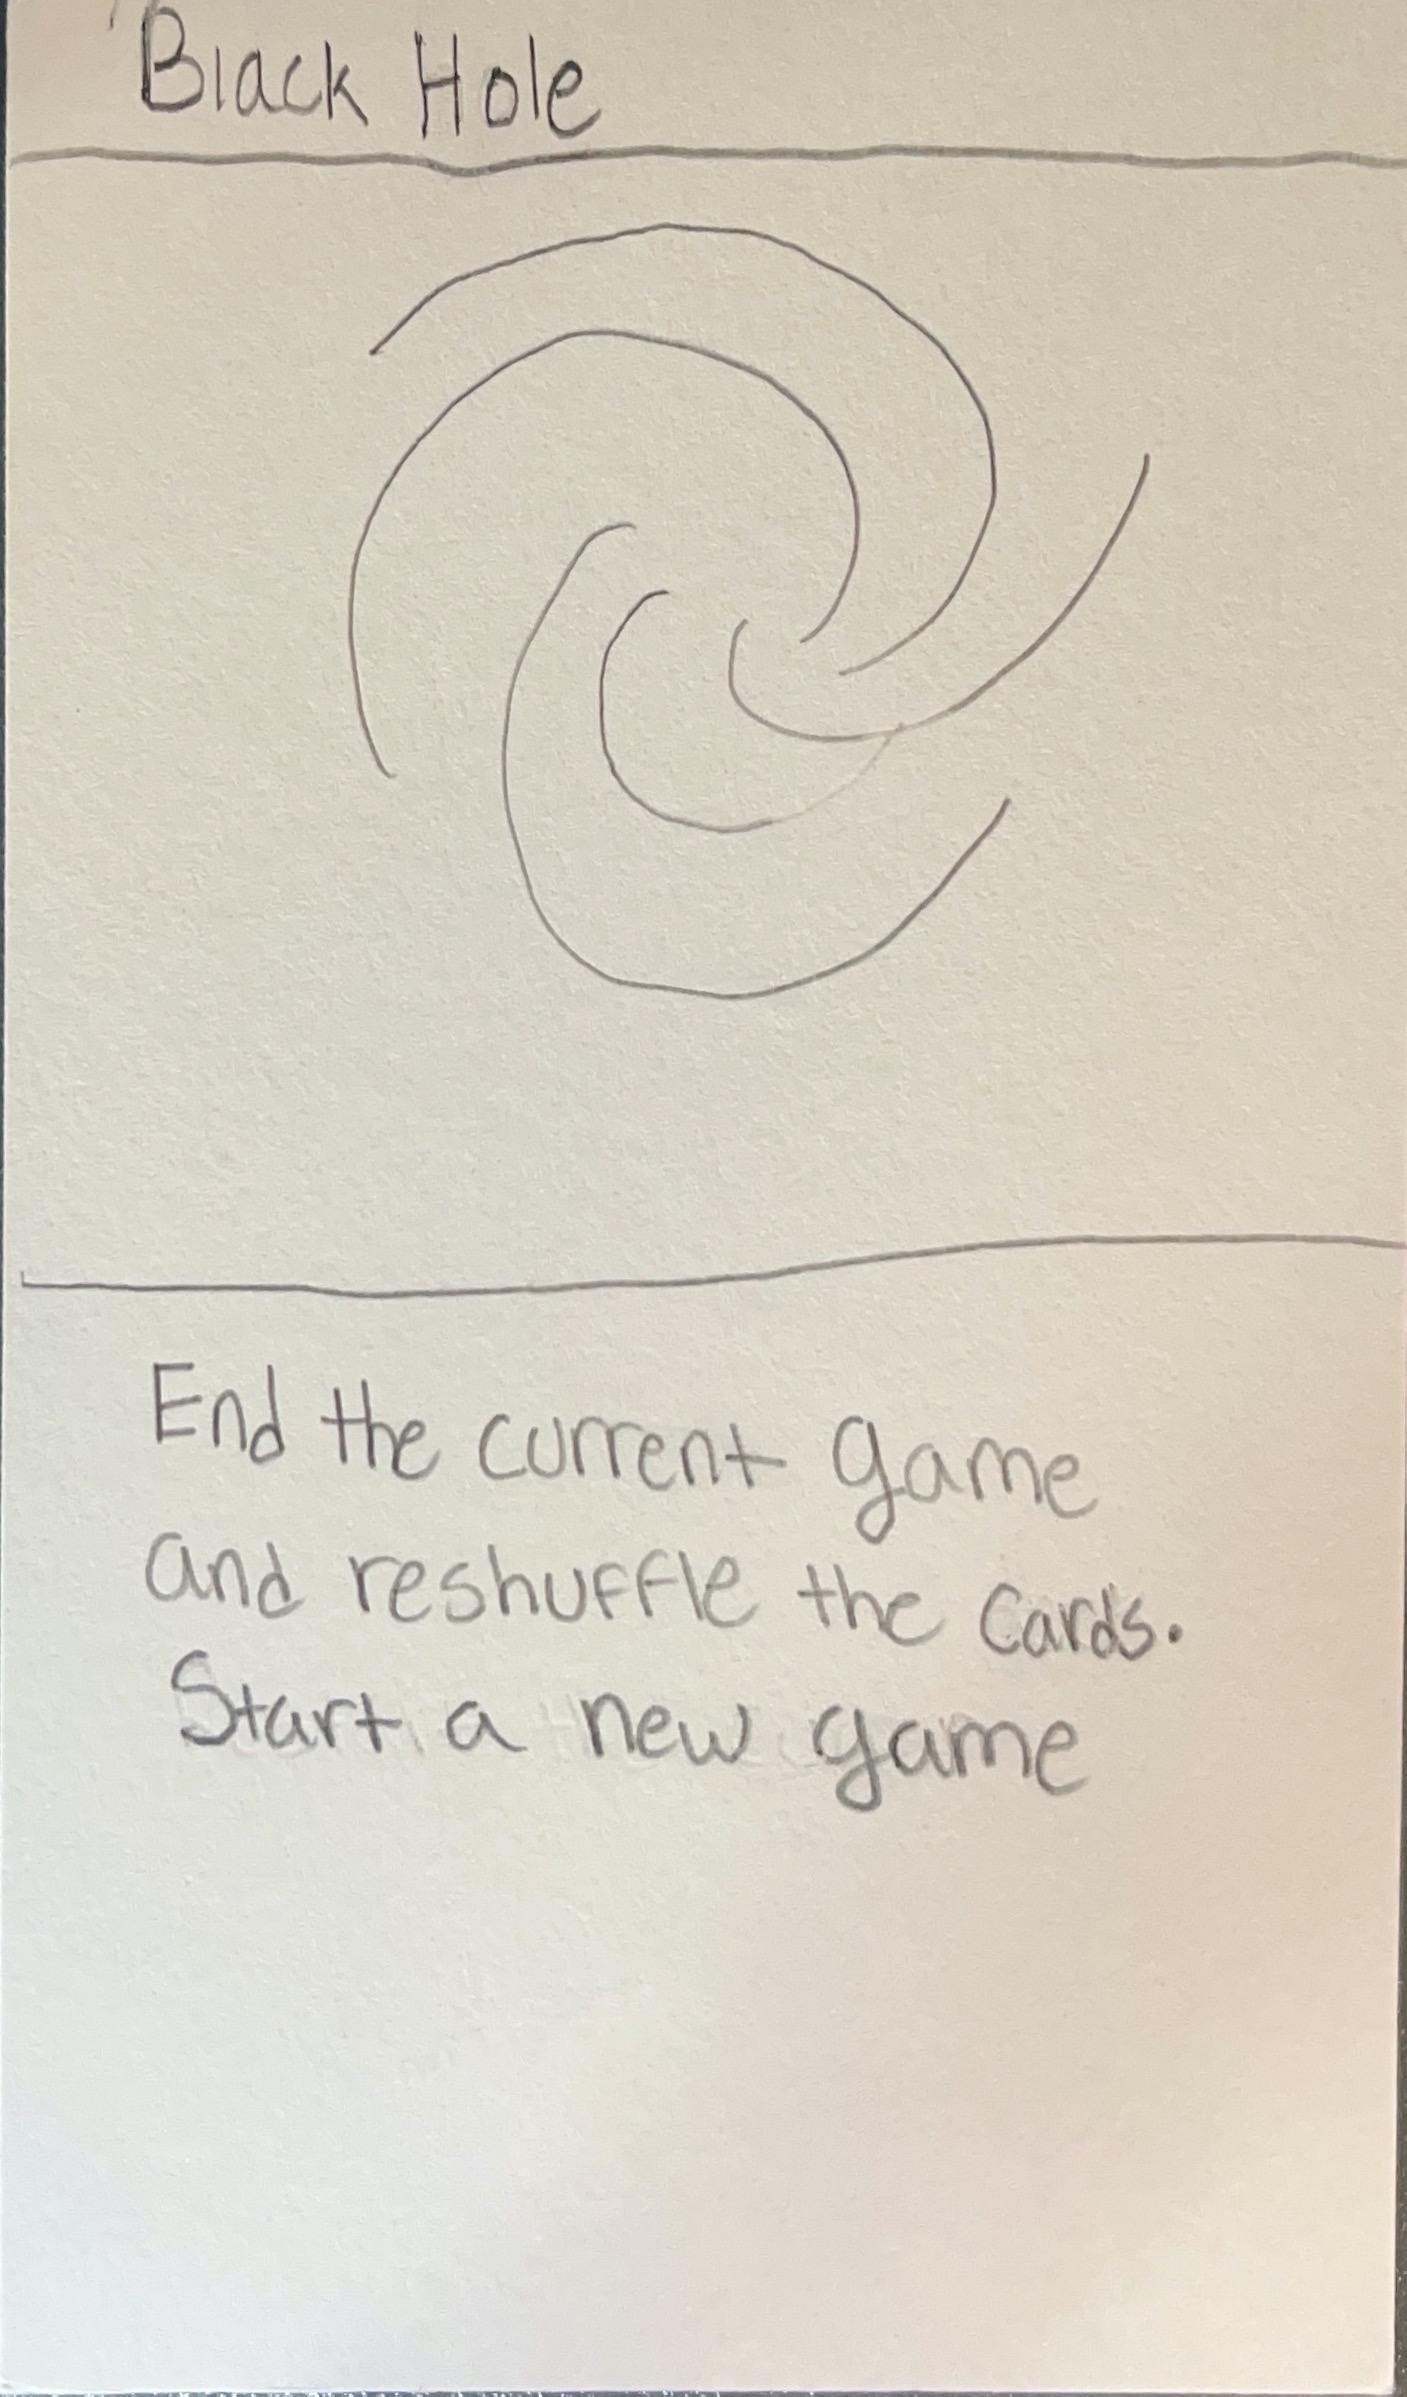 Black Hole
End the current game
and reshuffle the cards.
Start a new game